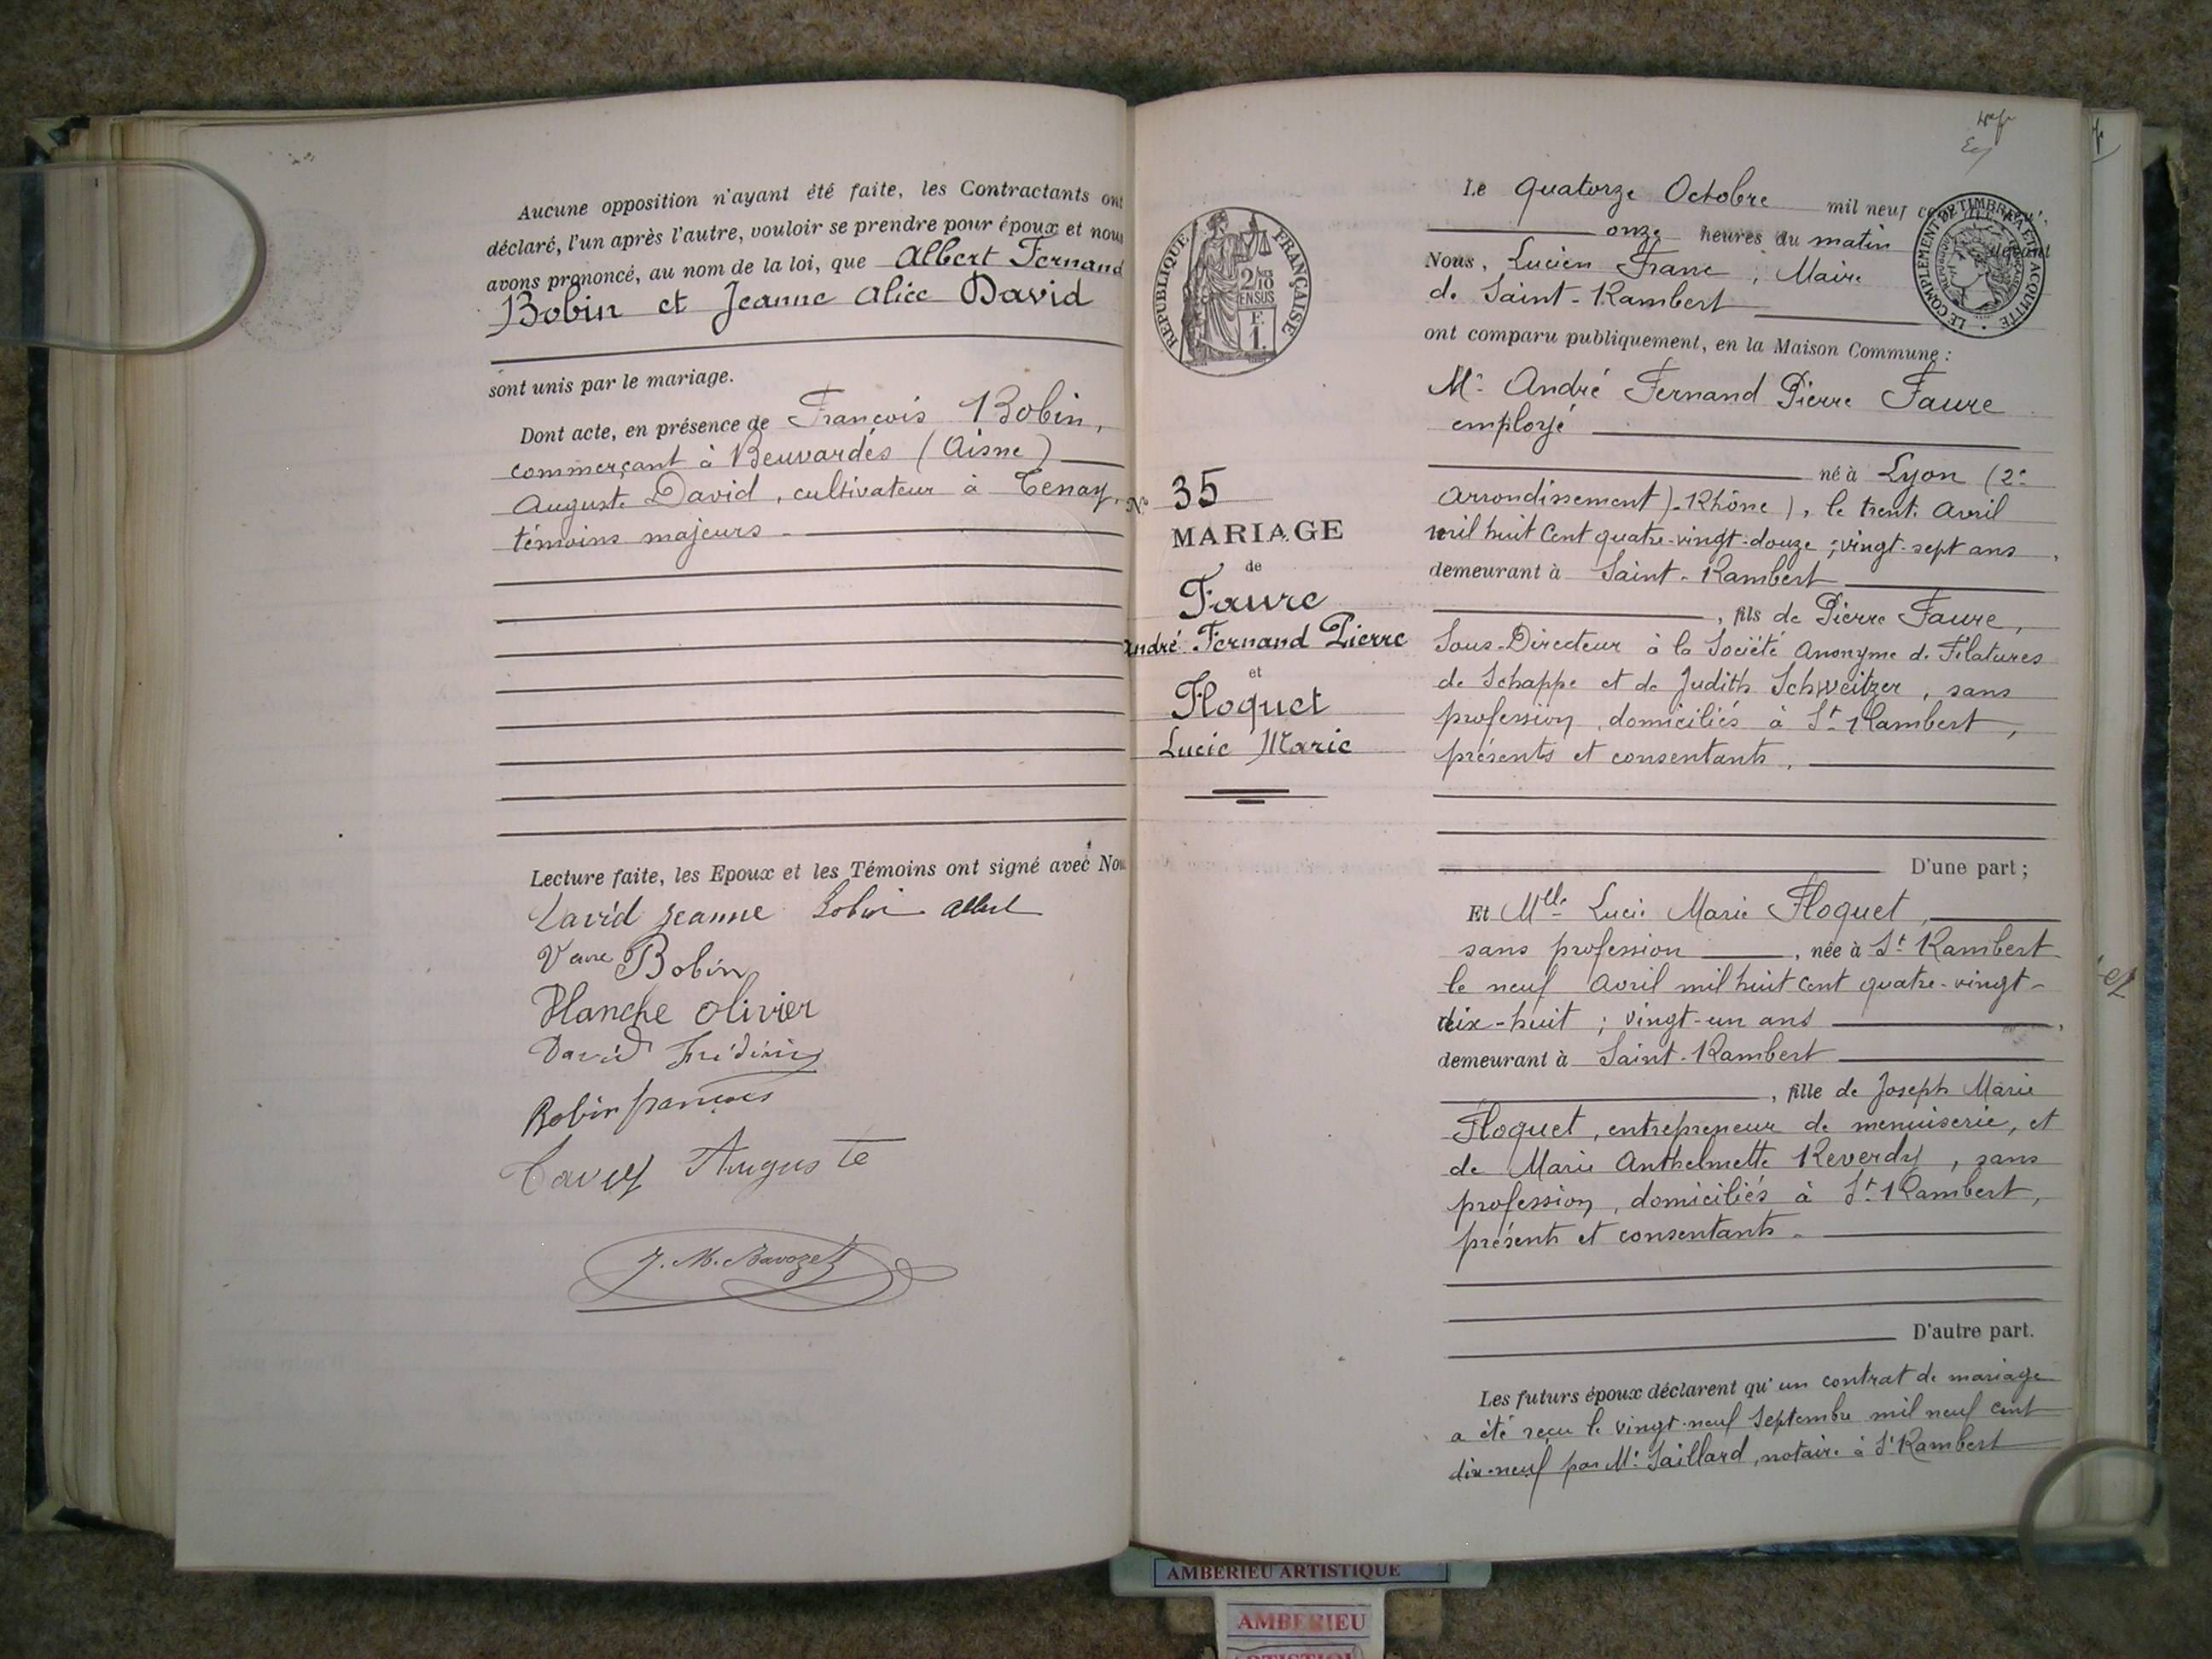 Aucune opposition n'ayant été faite, les Contractants ont
déclaré, l'un après l'autre, vouloir se prendre pour époux et nous
avons prononcé, au nom de la loi, que Albert Fernand
Bobin et Jeanne Alice David
sont unis par le mariage.
Dont acte, en présence de François Bobin,
commerçant à Beuvardes (Aisne)
Auguste David, cultivateur à Tenay,
témoins majeurs.
Lecture faite, les Epoux et les Témoins ont signé avec Nou
David Jeanne Bobin Albert
Veuve Bobin
Planche Olivier
David
Bobin françois
Auguste
J. M. Bavozet
RÉPUBLIQUE FRANÇAISE
2/10
EN SUS
F.
1.
No 35
MARIAGE
de
Faure
André Fernand Pierre
et
Floquet
Lucie Marie
Le quatorze Octobre mil neuf
LE COMPLEMENT DE TIMBRE A ETE ACQUITTE
onze heures du matin devant
Nous, Lucien Franc, Maire
de Saint-Rambert
ont comparu publiquement, en la Maison Commune :
Mr André Fernand Pierre Faure
employé
né à Lyon (2e
arrondissement)-Rhône), le trente Avril
mil huit cent quatre-vingt-douze ; vingt-sept ans,
demeurant à Saint-Rambert
, fils de Pierre Faure,
Sous-Directeur à la Société Anonyme de Filatures
de Schappe et de Judith Schweitzer, sans
profession, domiciliés à St Rambert,
présents et consentants.
D'une part ;
Et Melle Lucie Marie Floquet,
sans profession, née à St Rambert
le neuf Avril mil huit cent quatre-vingt-
dix-huit ; vingt-un ans,
demeurant à Saint-Rambert
, fille de Joseph Marie
Floquet, entrepreneur de menuiserie, et
de Marie Anthelmette Reverdy, sans
profession, domiciliés à St Rambert,
présents et consentants.
D'autre part.
Les futurs époux déclarent qu'un contrat de mariage
a été reçu le vingt-neuf Septembre mil neuf cent
dix-neuf par Me Saillard, notaire à St Rambert
AMBERIEU ARTISTIQUE
AMBERIEU